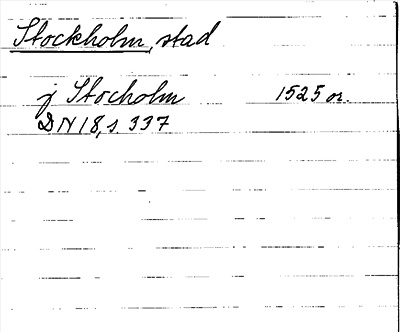 Stockholm, stad
j Stocholm 1525 or.
DN 18, s 337